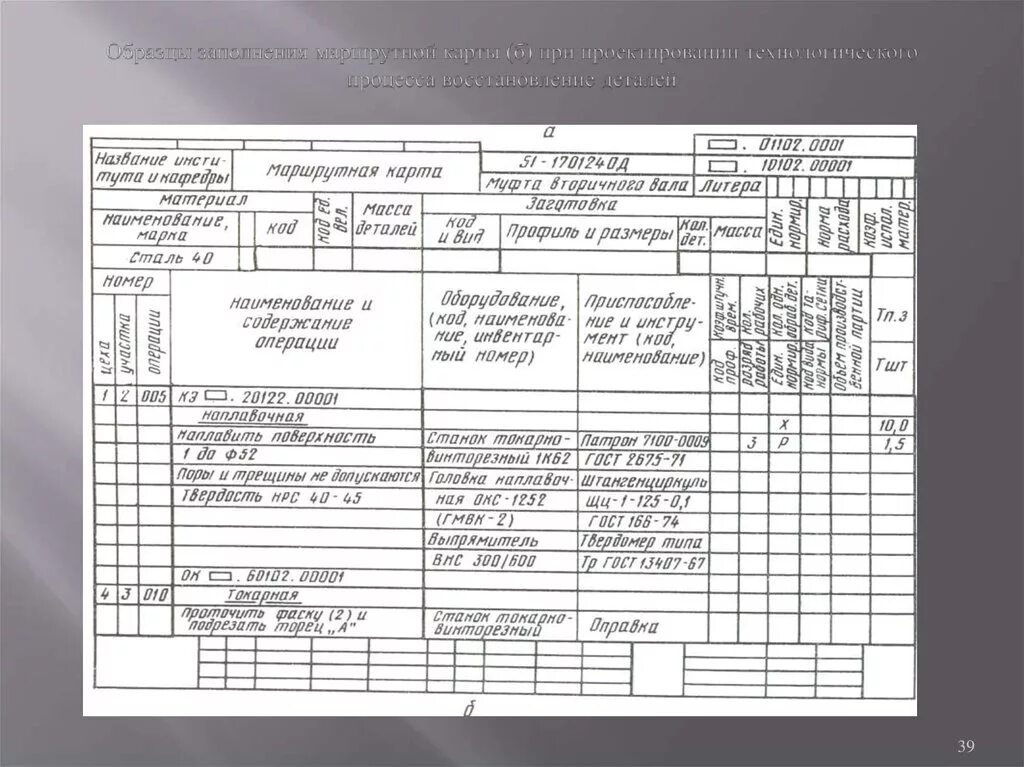 Образцы заполнения маршрутной карты (б) при проектировании технологического
процесса восстановление деталей
а
Название инсти-
тута и кафедры
Маршрутная карта
51-1701240Д
Муфта вторичного вала
Литера
. 01102.0001
. 10102.00001
Материал
Наименование,
марка
код
код ед.
вел.
Масса
деталей
Заготовка
Код
и вид
Профиль и размеры
Кол.
дет.
Масса
Един.
нормир.
Норма
расхода
Коэф.
испол.
матер.
Сталь 40
Номер
цеха
участка
операции
Наименование и
содержание
операции
Оборудование,
(код, наименова-
ние, инвентар-
ный номер)
Приспособле-
ние и инстру-
мент (код,
наименование)
Коэф.штучн.
врем.
код
проф.
Кол.
рабочих
разряд
работы
Кол. одн.
обраб. дет.
Един.
нормир.
Код та-
риф. сетки
код вида
нормы
Объем производст-
венной партии
Тп.з
Тшт
1 2 005 КЭ . 20122.00001
Наплавочная
Х 10,0
Наплавить поверхность Станок токарно- Патрон 7100-0009 3 Р 1,5
1 до Ф52 винторезный 1К62 ГОСТ 2675-71
Поры и трещины не допускаются Головка наплавоч- Штангенциркуль
Твердость HRC 40-45 ная ОКС-1252 ЩЦ-1-125-0,1
(ГМВК-2) ГОСТ 166-74
Выпрямитель Твердомер типа
ВНС 300/600 Тр ГОСТ 13407-67
ОК . 60102.00001
4 3 010 Токарная
Проточить фаску (2) и Станок токарно- Оправка
подрезать торец „А" винторезный
б
39